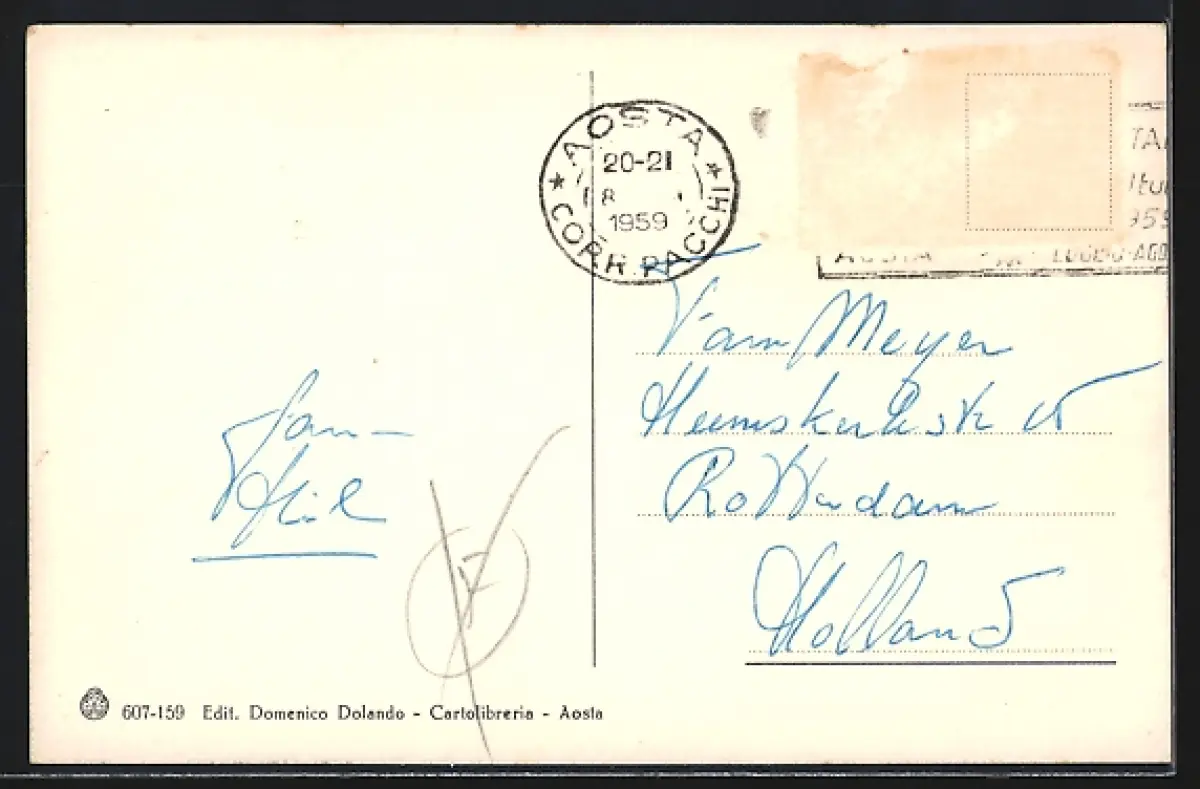 AOSTA
20-21
8
1959
CORR. PACCHI
AOSTA LUGLIO-AGO
Fam Meyer
Heemskerkstr
Rotterdam
Holland
Jan -
607-159 Edit. Domenico Dolando - Cartolibreria - Aosta